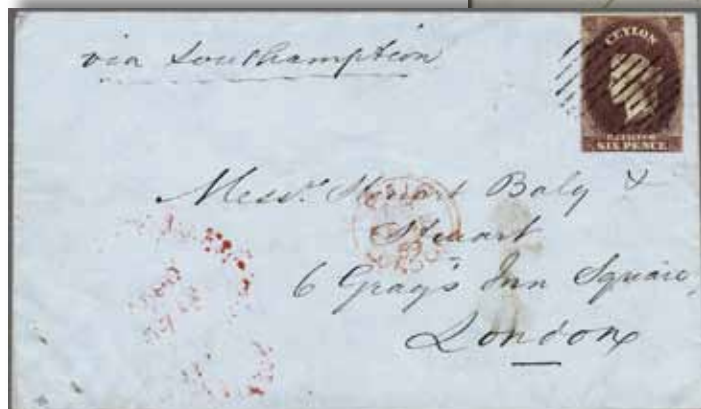 via Southampton
CEYLON
SIX PENCE
Messrs. Stewart Baly &
Stewart
6 Gray's Inn Square,
London